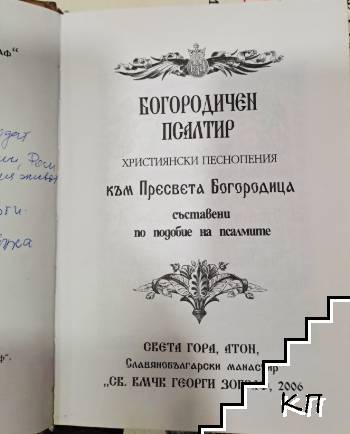 АФ"
БОГОРОДИЧЕН
ПСАЛТИР
ХРИСТИЯНСКИ ПЕСНОПЕНИЯ
КЪМ ПРЕСВЕТА БОГОРОДИЦА
СЪСТАВЕНИ
ПО ПОДОБИЕ НА ПСАЛМИТЕ
СВЕТА ГОРА, АТОН,
СЛАВЯНОБЪЛГАРСКИ МАНАСТИР
„СВ. ВМЧК ГЕОРГИ 2006
КП